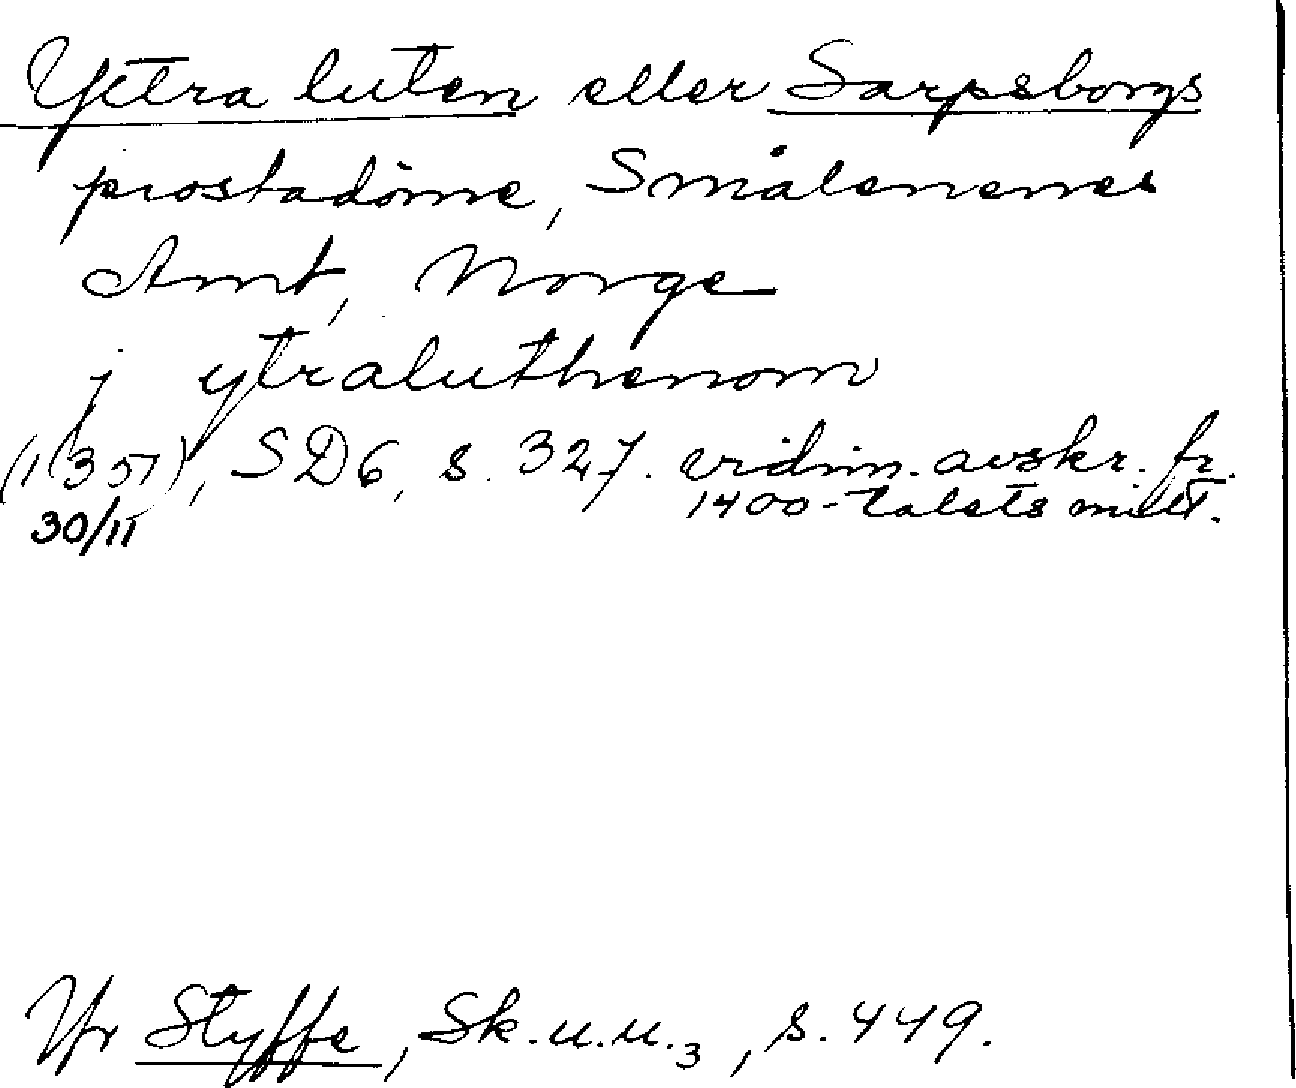 Yttra luten eller Sarpsborgs
prostadöme, Smålenenes
Amt, Norge
j ytraluthenom
(1351), SD6, s. 327. vidim. avskr. fr.
30/11 1400-talets mitt.
Jfr Styffe, Sk.u.u.3, s. 449.